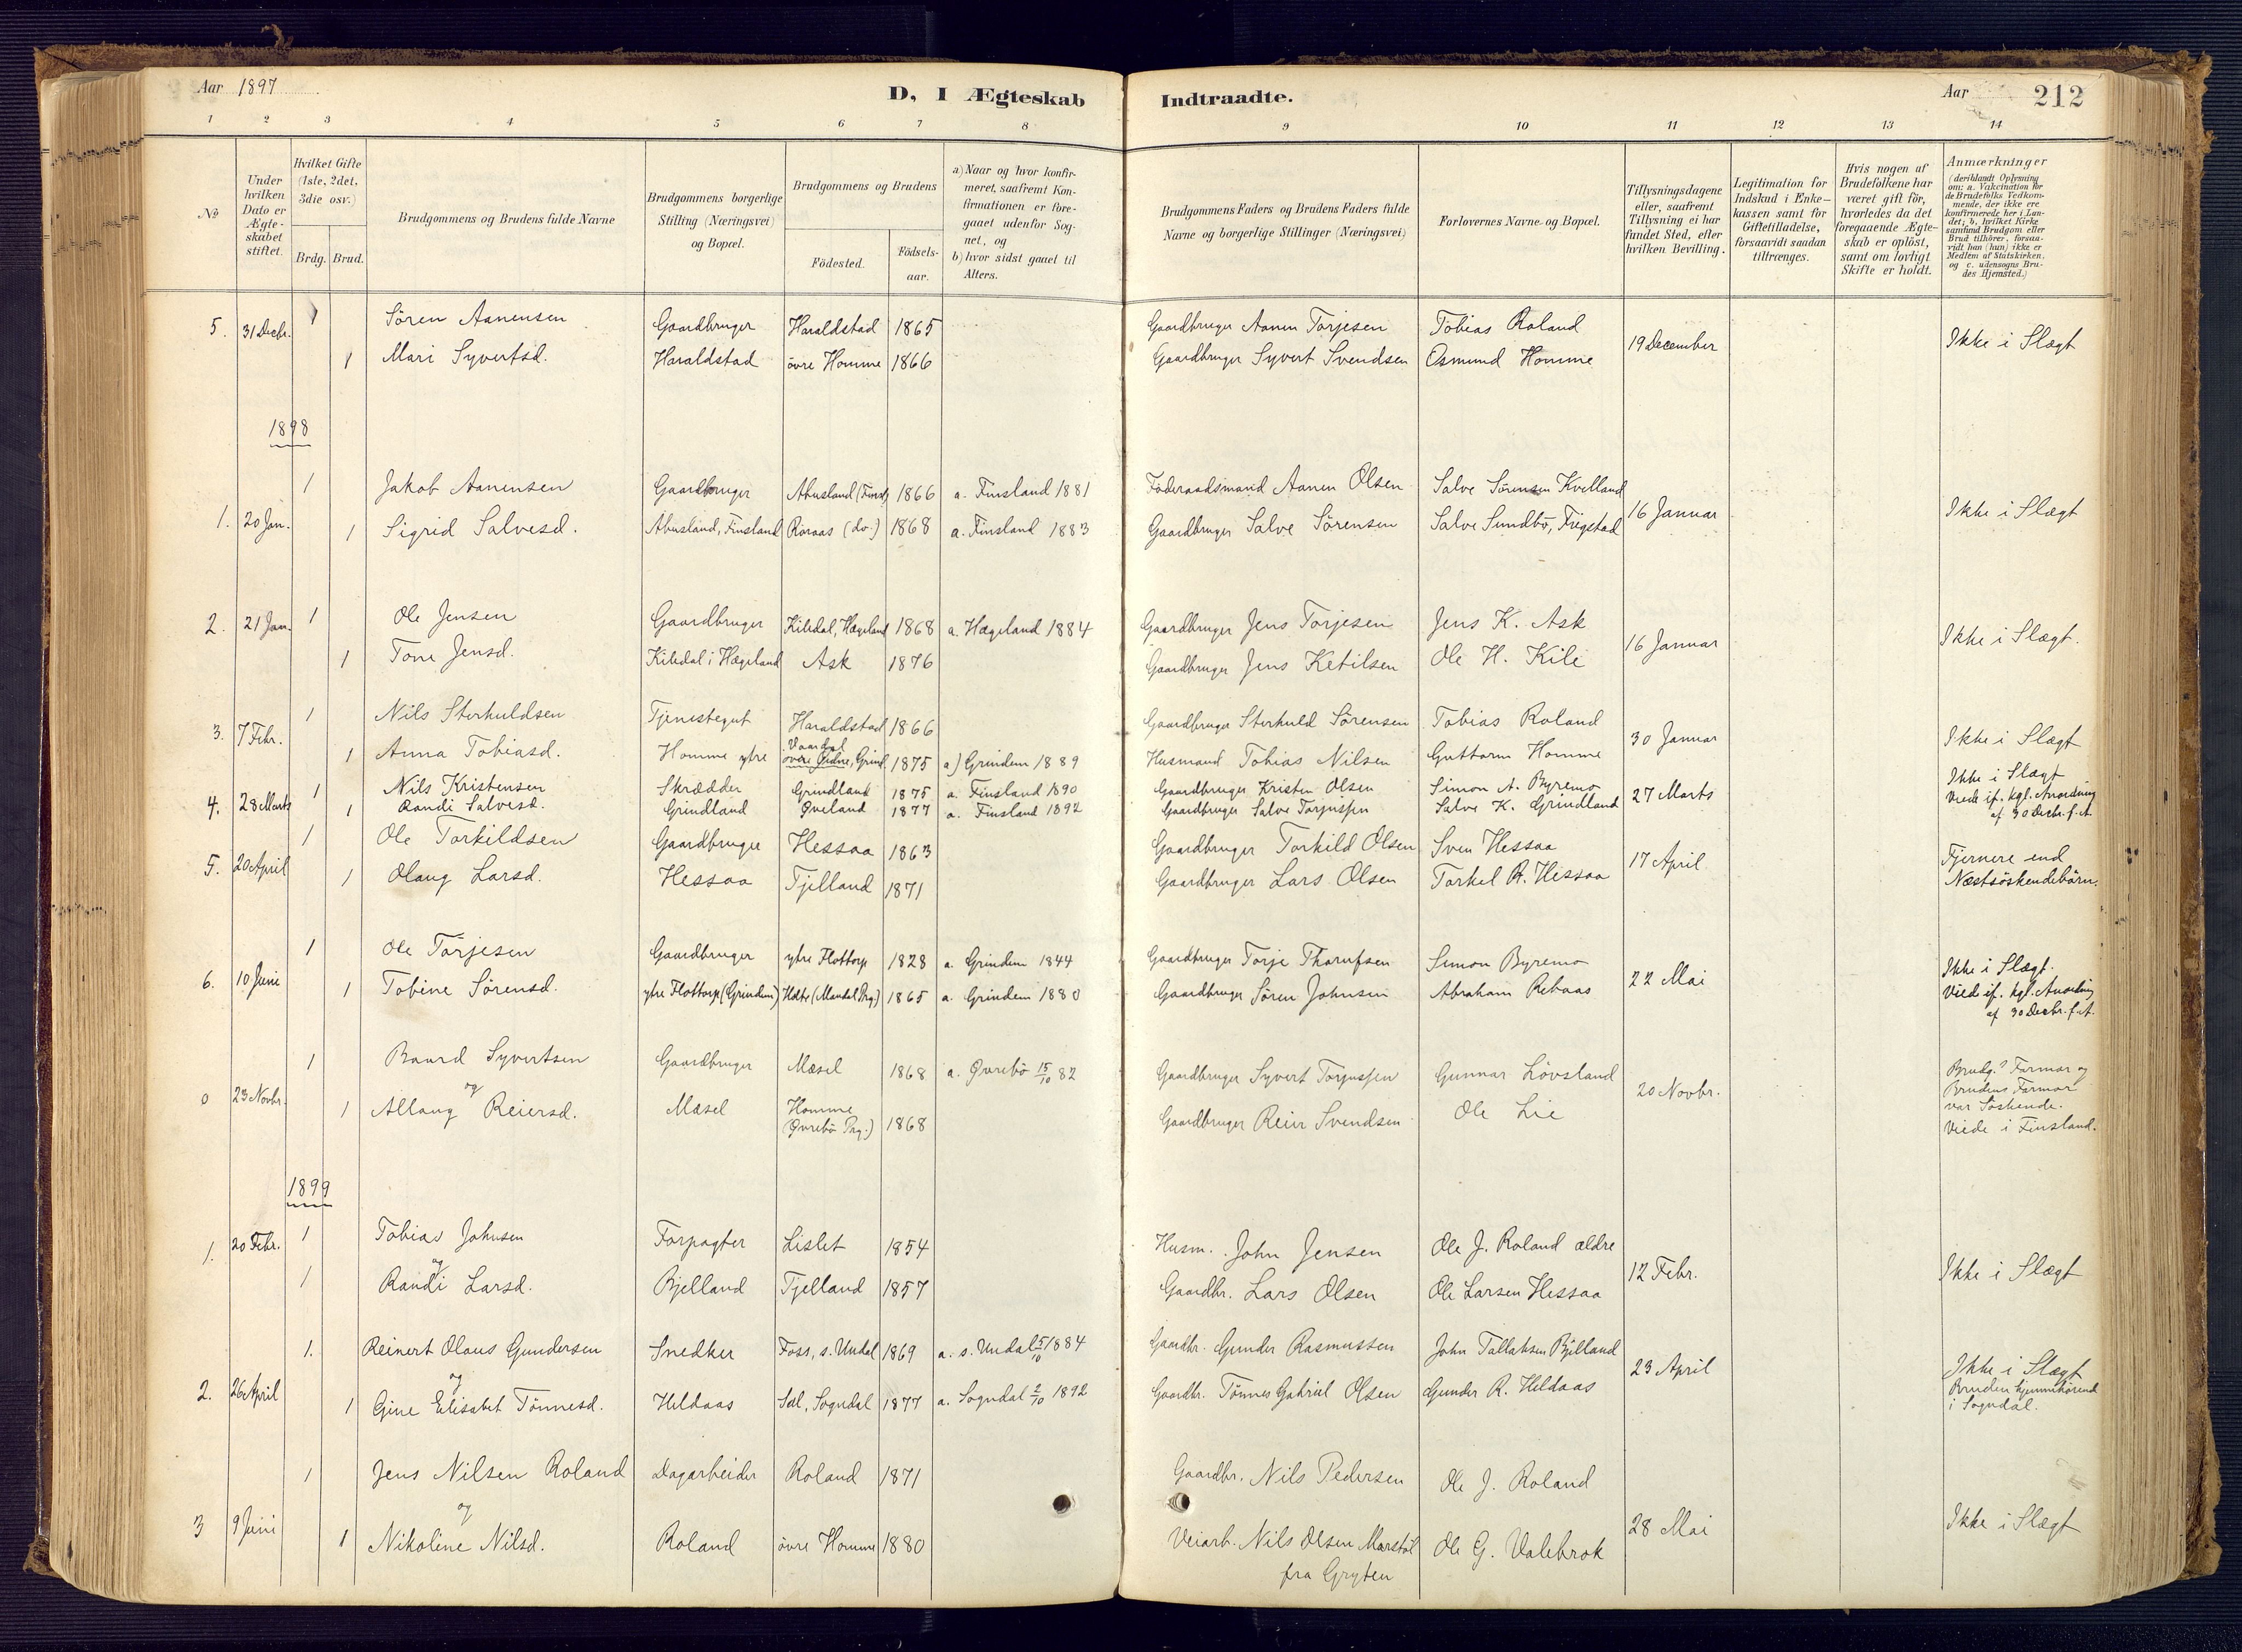 Aar 1897
D, I Ægteskab Indtraadte.
Aar 212
1 2 3 4 5 6 7 8 9 10 11 12 13 14
№
Under hvilken Dato er Ægteskabet stiftet.
Hvilket Gifte (1ste, 2det, 3die osv.)
Brdg. Brud.
Brudgommens og Brudens fulde Navne
Brudgommens borgerlige Stilling (Næringsvei) og Bopæl.
Brudgommens og Brudens
Födested.
Födsels-aar.
a) Naar og hvor konfirmeret, saafremt Konfirmationen er foregaaet udenfor Sognet, og
b) hvor sidst gaaet til Alters.
Brudgommens Faders og Brudens Faders fulde Navne og borgerlige Stillinger (Næringsvei)
Forlovernes Navne og Bopæl.
Tillysningsdagene eller, saafremt Tillysning ei har fundet Sted, efter hvilken Bevilling.
Legitimation for Indskud i Enkekassen samt for Giftetilladelse, forsaavidt saadan tiltrænges.
Hvis nogen af Brudefolkene har været gift för, hvorledes da det foregaaende Ægteskab er oplöst, samt om lovligt Skifte er holdt.
Anmærkninger (deriblandt Oplysning om: a. Vakcination for de Brudefolks Vedkommende, der ikke ere konfirmerede her i Landet; b. hvilket Kirkesamfund Brudgom eller Brud tilhörer, forsaavidt han (hun) ikke er Medlem af Statskirken. og c. udensogns Brudes Hjemsted.)
5. 31 Decbr. 1 Sören Aanensen Gaardbruger Haraldstad 1865 Gaardbruger Aanen Torjesen Tobias Roland 19 December Ikke i Slægt
1 Mari Syvertsd. Haraldstad övre Homme 1866 Gaardbruger Syvert Svendsen Osmund Homme
1898
1 Jakob Aanensen Gaardbruger Abusland (Finsl) 1866 a. Finsland 1881 Föderaadsmand Aanen Olsen Salve Sörensen Kvelland
1. 20 Jan. 1 Sigrid Salvesd. Abusland, Finsland Röiraas (do.) 1868 a. Finsland 1883 Gaardbruger Salve Sörensen Salve Sundbö, Fiegstad 16 Januar Ikke i Slægt
2. 21 Jan. 1 Ole Jensen Gaardbruger Kiledal, Hægeland 1868 a. Hægeland 1884 Gaardbruger Jens Torjesen Jens K. Ask 16 Januar Ikke i Slægt.
1 Tone Jensd. Kiledal i Hægeland Ask 1876 Gaardbruger Jens Ketilsen Ole H. Kile
3. 7 Febr. 1 Nils Sterkuldsen Tjenestegut Haraldstad 1866 Gaardbruger Sterkuld Sörensen Tobias Roland 30 Januar Ikke i Slægt
1 Anna Tobiasd. Homme ytre 1875 a) Grindem 1889 Husmand Tobias Nilsen Guttorm Homme
4. 28 Marts 1 Nils Kristensen Skrædder Grindland 1875 a. Finsland 1890 Gaardbruger Kristen Olsen Simon A. Byremo 27 Marts Ikke i Slægt
1 Randi Salvesd. Grindland Öveland 1877 a. Finsland 1892 Gaardbruger Salve Torjussen Salve K. Grindland Viede if. kgl. Anordning
af 30 Decbr. f. A.
5. 20 April 1 Ole Torkildsen Gaardbruger Hessaa 1863 Gaardbruger Torkild Olsen Sven Hessaa 17 April Fjernere end
1 Olaug Larsd. Hessaa Tjelland 1871 Gaardbruger Lars Olsen Torkel R. Hessaa Næstsöskendebörn.
6. 10 Juni 1 Ole Torjesen Gaardbruger ytre Flottorp 1828 a. Grindem 1844 Gaardbruger Torje Simon Byremo 22 Mai Ikke i Slægt.
1 Tobine Sörensd. ytre Flottorp (Grindem) Holte (Mandal Prg.) 1865 a. Grindem 1880 Gaardbruger Sören Johnsen Abraham Rebaas Viede if. kgl. Anordning
af 30 Decbr. f. A.
1 Baard Syvertsen Gaardbruger Mæsel 1868 a. Övrebö 15/10 82 Gaardbruger Syvert Torjussen Gunnar Lövsland Brudg.s Farmor og
0 23 Novbr. og 20 Novbr. Brudens Farmor
1 Allaug Reiersd. Mæsel Homme (Övrebö Prg.) 1868 Gaardbruger Reier Svendsen Ole Lie var Söskende.
Viede i Finsland.
1899
1. 20 Febr. 1 Tobias Johnsen Forpagter Lislet 1854 Husm. John Jensen Ole J. Roland ældre
og 12 Febr. Ikke i Slægt
1 Randi Larsd. Bjelland Tjelland 1857 Gaardbr. Lars Olsen Ole Larsen Hessaa
1. Reinert Olaus Gundersen Snedker Foss, s. Undal 1869 a. s. Undal 5/10 1884 Gaardbr. Gunder Rasmussen John Tallaksen Bjelland
2. 26 April og 23 April Ikke i Slægt
1 Gine Elisabet Tönnesd. Heldaas Sæl, Sogndal 1877 a. Sogndal 2/10 1892 Gaardbr. Tönnes Gabriel Olsen Gunder R. Heldaas Bruden hjemmehörende
i Sogndal.
1 Jens Nilsen Roland Dagarbeider Roland 1871 Gaardbr. Nils Pedersen Ole J. Roland
3 9 Juni og 28 Mai Ikke i Slægt
1 Nikoline Nilsd. Roland övre Homme 1880 Veiarb. Nils Olsen Marstöl Ole G. Valebrok
fra Gryten